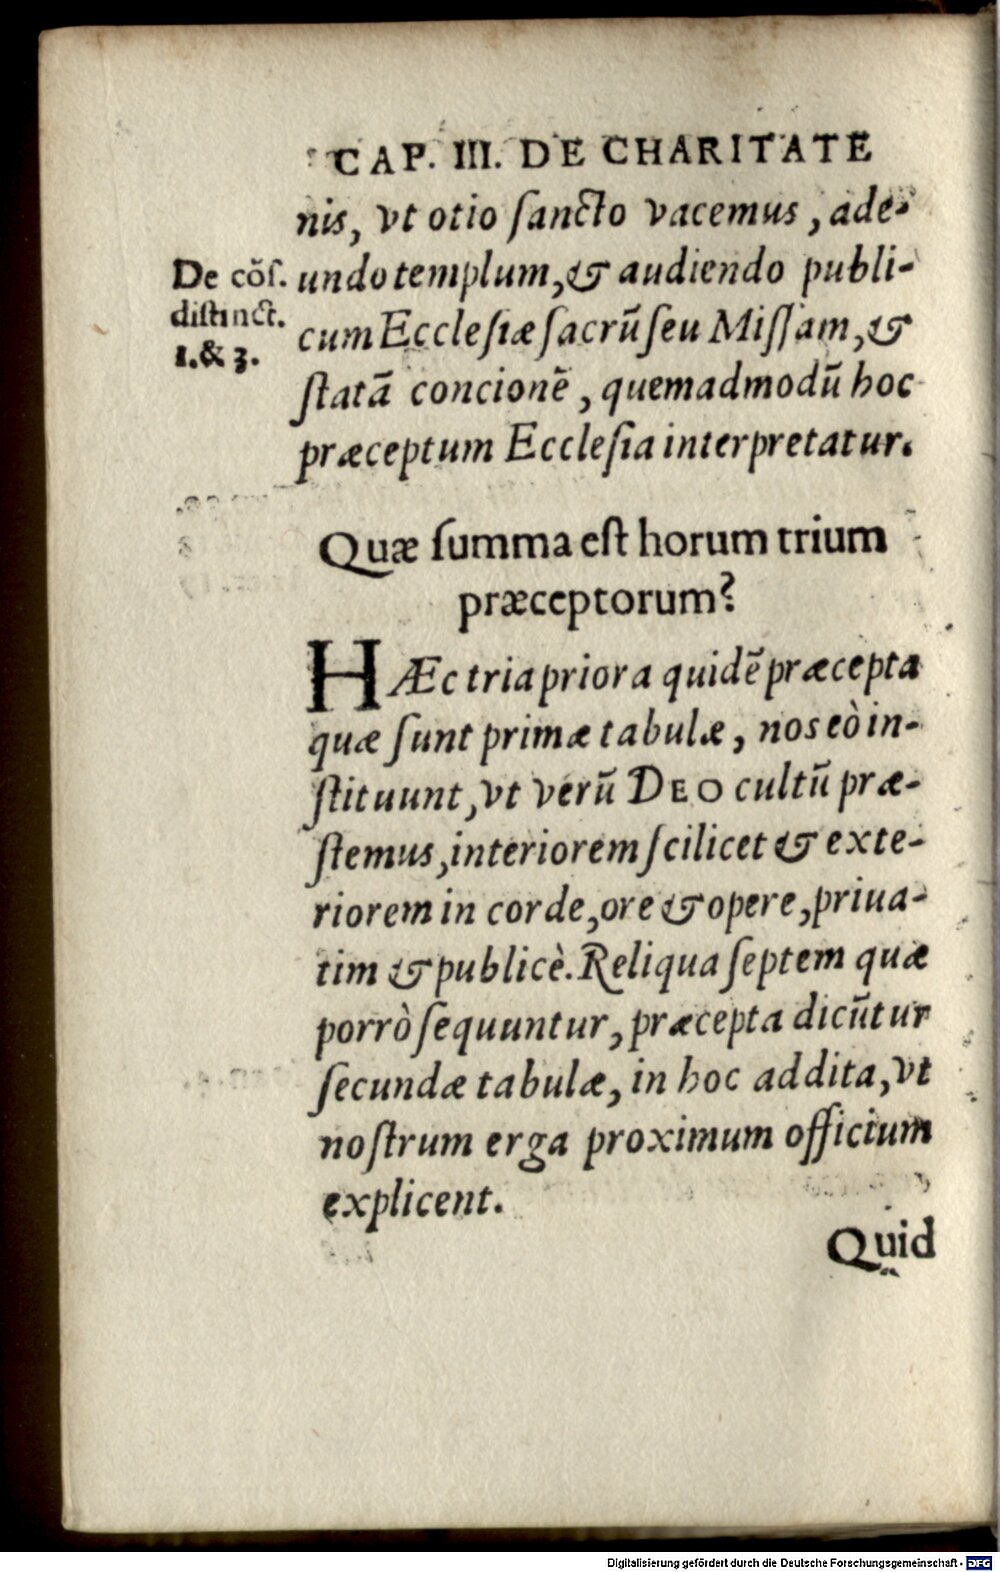 CAP. III. DE CHARITATE
nis, vt otio ſancto vacemus, ade-
undo templum, & audiendo publi-
cum Eccleſiæ ſacrũ ſeu Miſſam, &
ſtatã concionẽ, quemadmodũ hoc
præceptum Eccleſia interpretatur.
De cõſ.
diſtinct.
1. & 3.
Quæ ſumma eſt horum trium
præceptorum?
HÆc tria priora quidẽ præcepta
quæ ſunt primæ tabulæ, nos eò in-
ſtituunt, vt verũ DEO cultũ præ-
ſtemus, interiorem ſcilicet & exte-
riorem in corde, ore & opere, priua-
tim & publicè. Reliqua ſeptem quæ
porrò ſequuntur, præcepta dicũtur
ſecundæ tabulæ, in hoc addita, vt
noſtrum erga proximum officium
explicent.
Quid
Digitalisierung gefördert durch die Deutsche Forschungsgemeinschaft - DFG